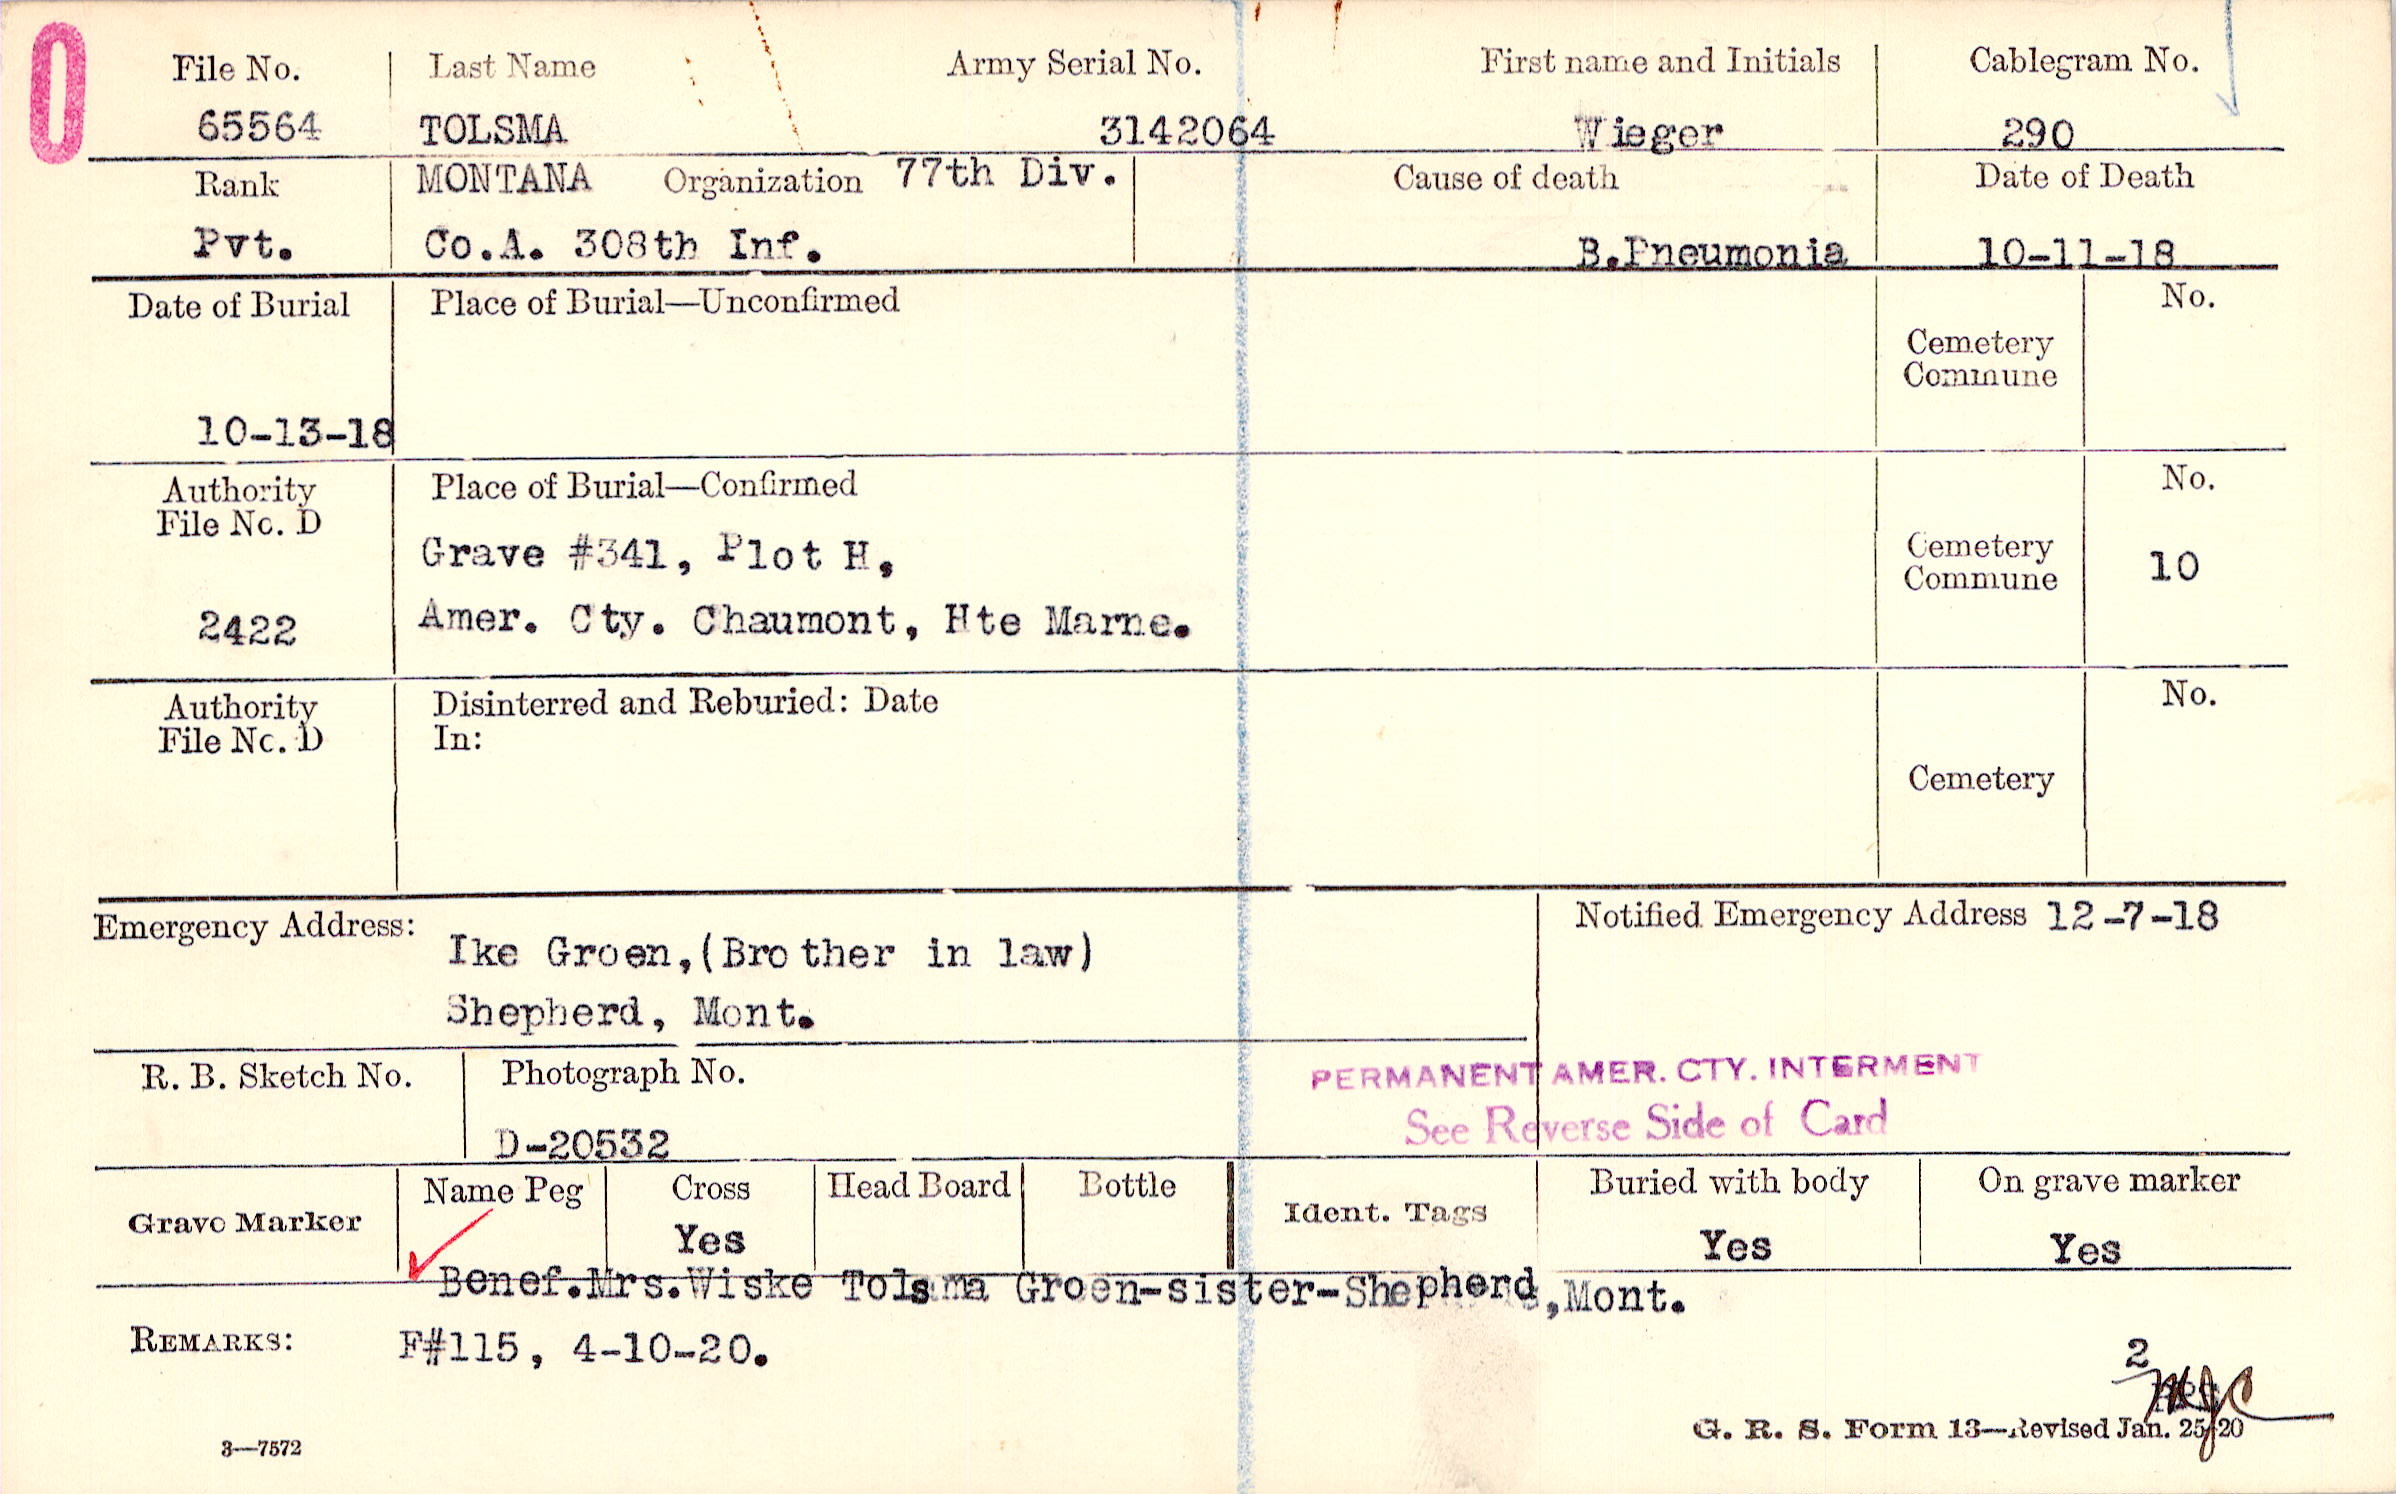 0
File No. Last Name Army Serial No. First name and Initials Cablegram No.
65564 TOLSMA 3142064 Wieger 290
Rank MONTANA Organization 77th Div. Cause of death Date of Death
Pvt. Co.A. 308th Inf. B.Pneumonia 10-11-18
Date of Burial Place of Burial—Unconfirmed No.
Cemetery
Commune
10-13-18
Authority Place of Burial—Confirmed No.
File No. D
Grave #341, Plot H,
Cemetery
Commune 10
2422 Amer. Cty. Chaumont, Hte Marne.
Authority Disinterred and Reburied: Date No.
File No. D In:
Cemetery
Emergency Address: Notified Emergency Address 12-7-18
Ike Groen,(Brother in law)
Shepherd, Mont.
R. B. Sketch No. Photograph No. PERMANENT AMER. CTY. INTERMENT
See Reverse Side of Card
D-20532
Name Peg Cross Head Board Bottle Buried with body On grave marker
Grave Marker Ident. Tags
Yes Yes Yes
Benef.Mrs.Wiske Tolsma Groen-sister-Shepherd,Mont.
REMARKS: F#115, 4-10-20.
2
G. R. S. Form 13—Revised Jan. 25-20
3—7572